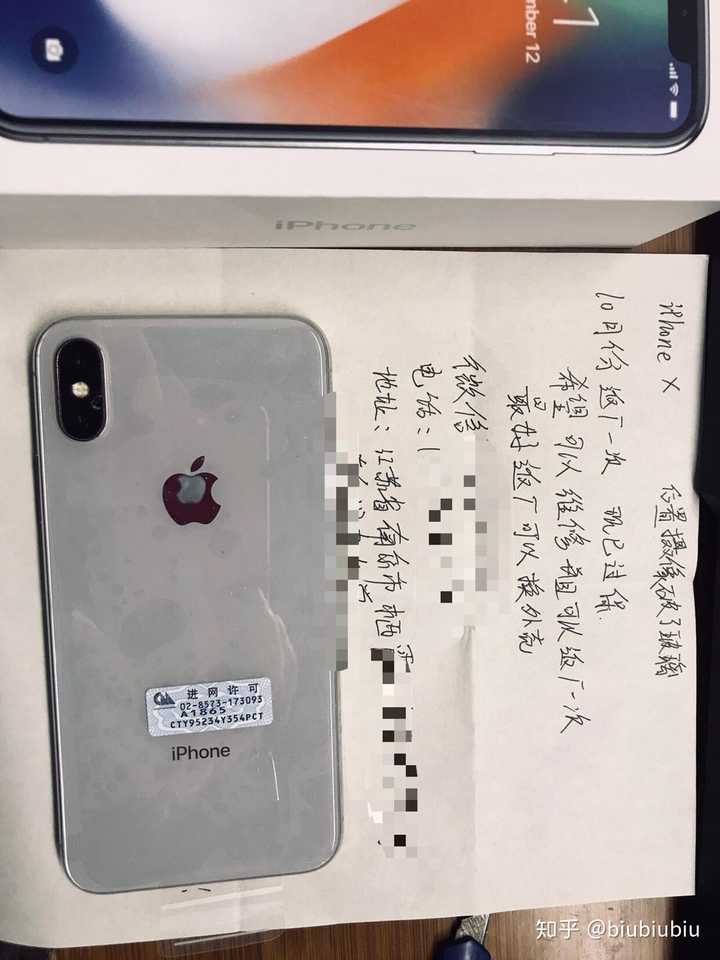 11
mber 12
iPhone
iPhone X 后置摄像破了玻璃
10月份 返厂一次 现已过保.
希望可以维修并且可以返厂一次
最好返厂可以换外壳
微信
电话：1
地址：江苏省南京市栖
进网许可
02-8573-173093
A1865
CTY95234Y354PCT
iPhone
知乎 @biubiubiu